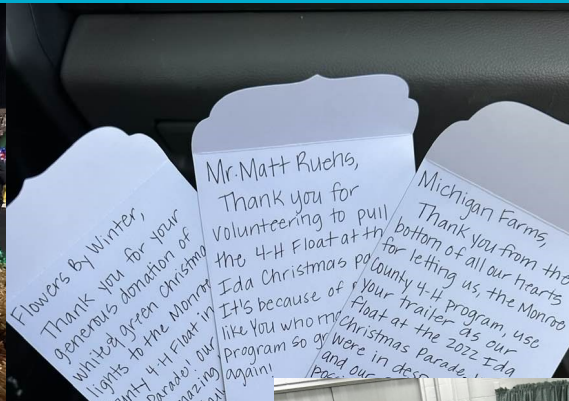 Flowers By Winter,
Thank you for your
generous donation of
white & green Christma
lights to the Monroe
unty 4-H Float in
Parade! our
mazing
Mr. Matt Ruehs,
Thank you for
volunteering to pull
the 4-H Float at th
Ida Christmas pa
It's because of
like you who m
Program so g
again!
Michigan Farms,
Thank you from the
bottom of all our hearts
for letting us, the Monroe
County 4-H Program, use
your trailer as our
float at the 2022 Ida
Christmas Parade!
were in des
and our